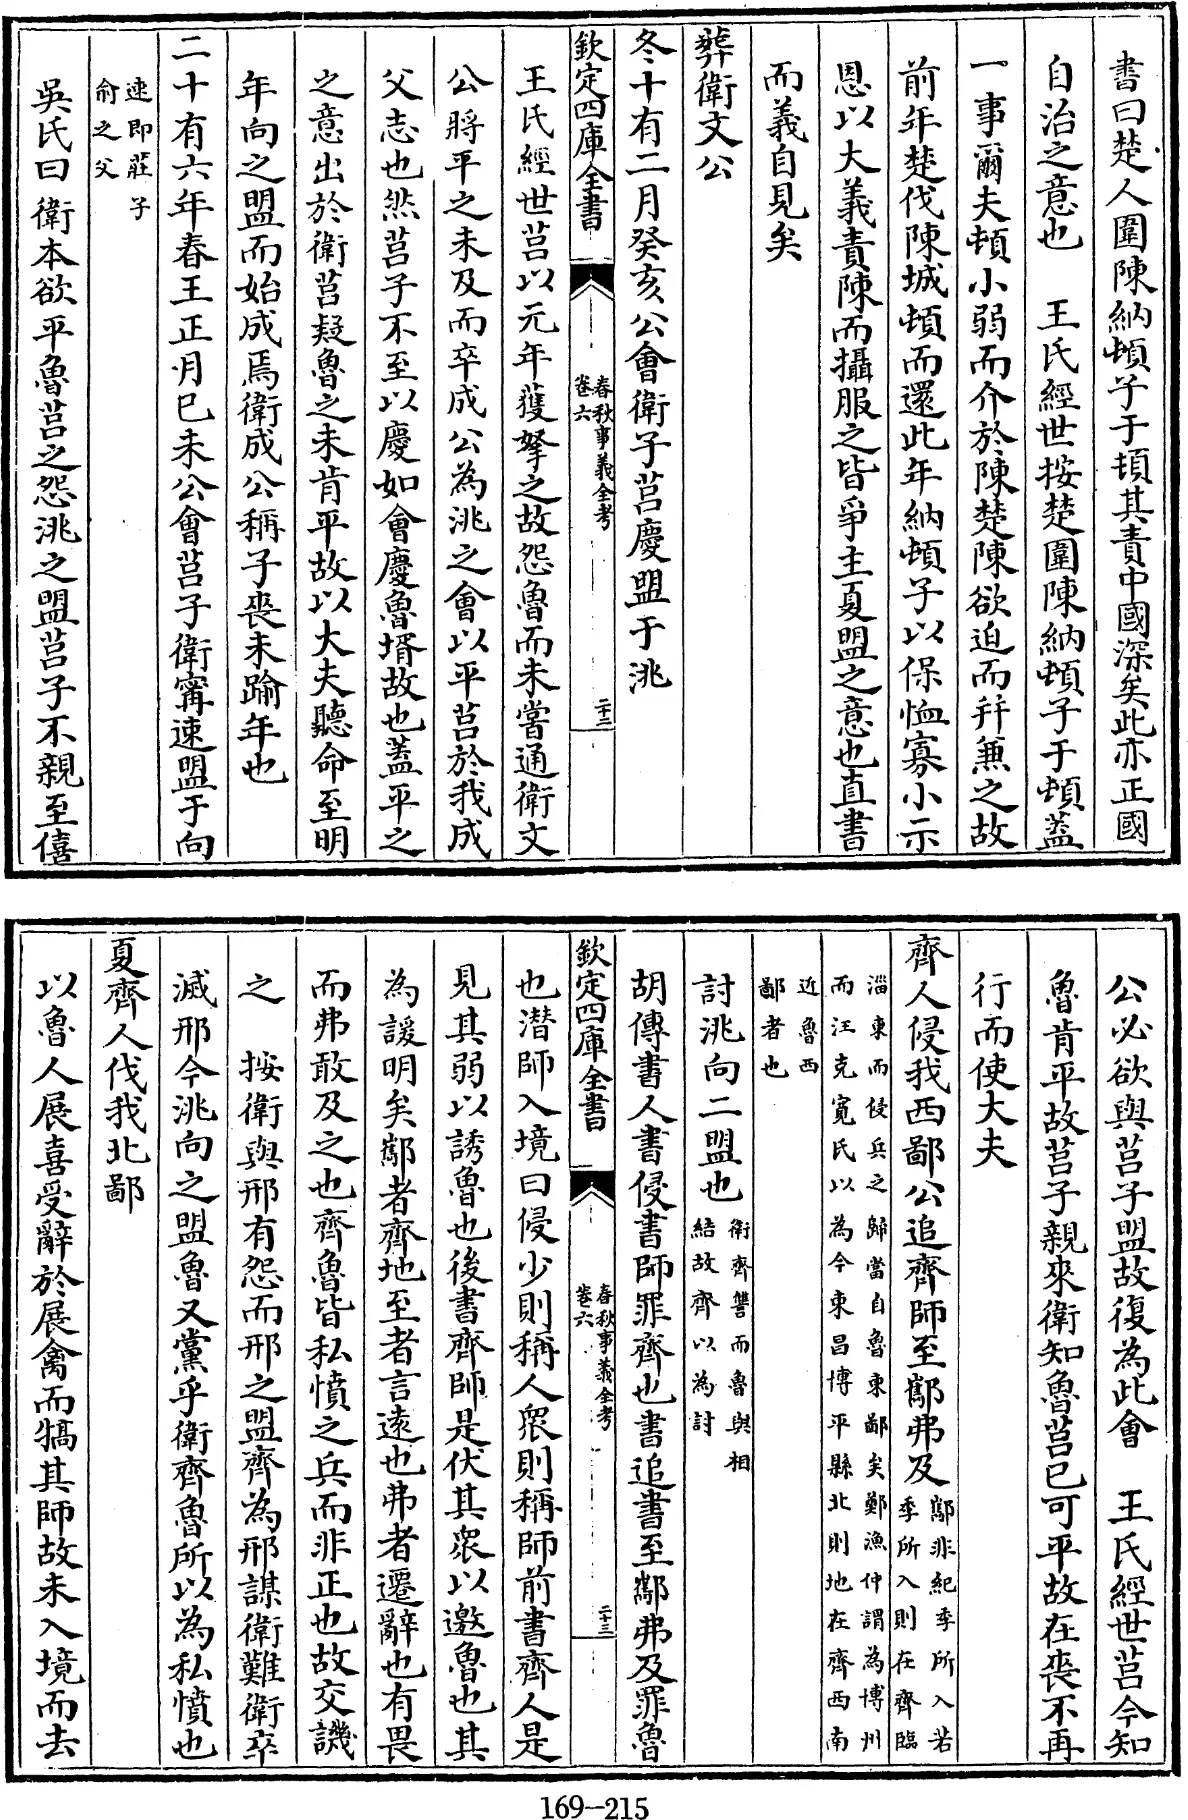 書曰楚人圍陳納頓子于頓其責中國深矣此亦正國
自治之意也　王氏經世按楚圍陳納頓子于頓蓋
一事爾夫頓小弱而介於陳楚陳欲迫而并兼之故
前年楚伐陳城頓而還此年納頓子以保恤寡小示
恩以大義責陳而攝服之皆爭主夏盟之意也直書
而義自見矣
葬衛文公
冬十有二月癸亥公會衛子莒慶盟于洮
欽定四庫全書　春秋事義全考卷六　二十二
王氏經世莒以元年獲拏之故怨魯而未嘗通衛文
公將平之未及而卒成公為洮之會以平莒於我成
父志也然莒子不至以慶如會慶魯壻故也蓋平之
之意出於衛莒疑魯之未肯平故以大夫聽命至明
年向之盟而始成焉衛成公稱子喪未踰年也
二十有六年春王正月己未公會莒子衛甯速盟于向
速即莊子
俞之父
吳氏曰衛本欲平魯莒之怨洮之盟莒子不親至僖
公必欲與莒子盟故復為此會　王氏經世莒今知
魯肯平故莒子親來衛知魯莒已可平故在喪不再
行而使大夫
齊人侵我西鄙公追齊師至酅弗及
酅非紀季所入若
季所入則在齊臨
淄東而侵兵之歸當自魯東鄙矣鄭漁仲謂為博州
而汪克寬氏以為今東昌博平縣北則地在齊西南
近魯西
鄙者也
討洮向二盟也
衛齊讐而魯與相
結故齊以為討
胡傳書人書侵書師罪齊也書追書至酅弗及罪魯
欽定四庫全書　春秋事義全考卷六　二十三
也潛師入境曰侵少則稱人衆則稱師前書齊人是
見其弱以誘魯也後書齊師是伏其衆以邀魯也其
為諼明矣酅者齊地至者言遠也弗者遷辭也有畏
而弗敢及之也齊魯皆私憤之兵而非正也故交譏
之　按衛與邢有怨而邢之盟齊為邢謀衛難衛卒
滅邢今洮向之盟魯又黨乎衛齊魯所以為私憤也
夏齊人伐我北鄙
以魯人展喜受辭於展禽而犒其師故未入境而去
169—215